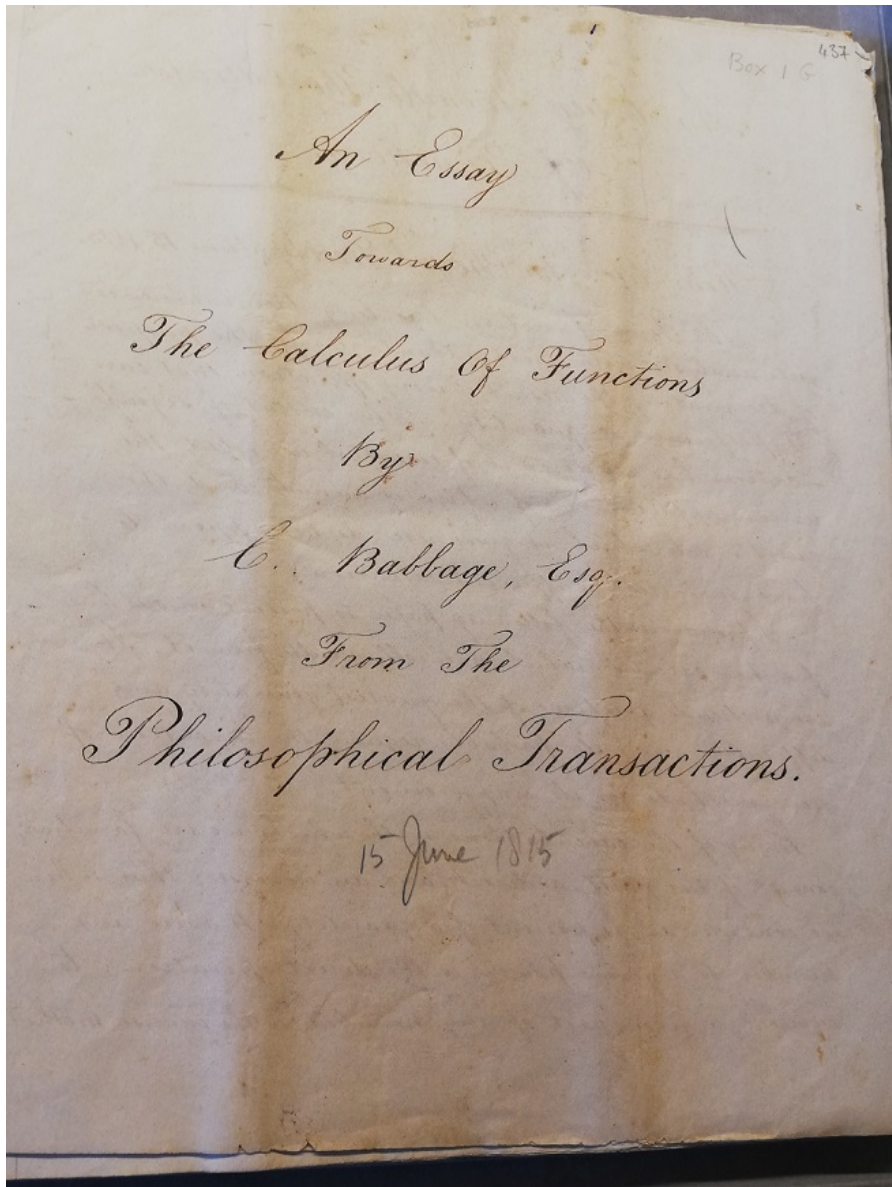 437
Box 1 G
An Essay
Towards
The Calculus Of Functions
By
C. Babbage, Esq.
From The
Philosophical Transactions.
15 June 1815